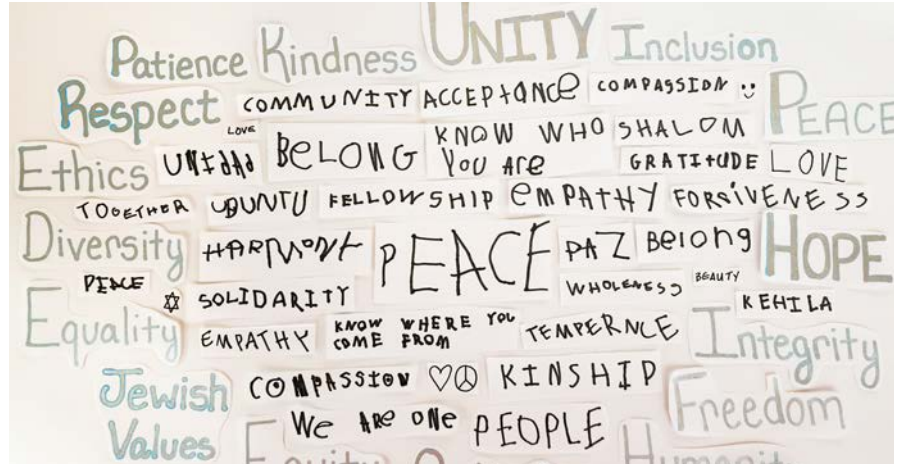 Patience Kindness UNITY Inclusion
Respect COMMUNITY ACCEPTANCE COMPASSION PEACE
LOVE
Ethics BELONG KNOW WHO SHALOM
YOU ARE GRATITUDE LOVE
TOGETHER UBUNTU FELLOWSHIP EMPATHY FORGIVENESS
Diversity HARMONY PEACE PAZ Belong HOPE
PEACE SOLIDARITY WHOLENESS BEAUTY KEHILA
Equality EMPATHY KNOW WHERE YOU TEMPERNCE Integrity
COME FROM
Jewish COMPASSION KINSHIP Freedom
Values We ARE ONE PEOPLE